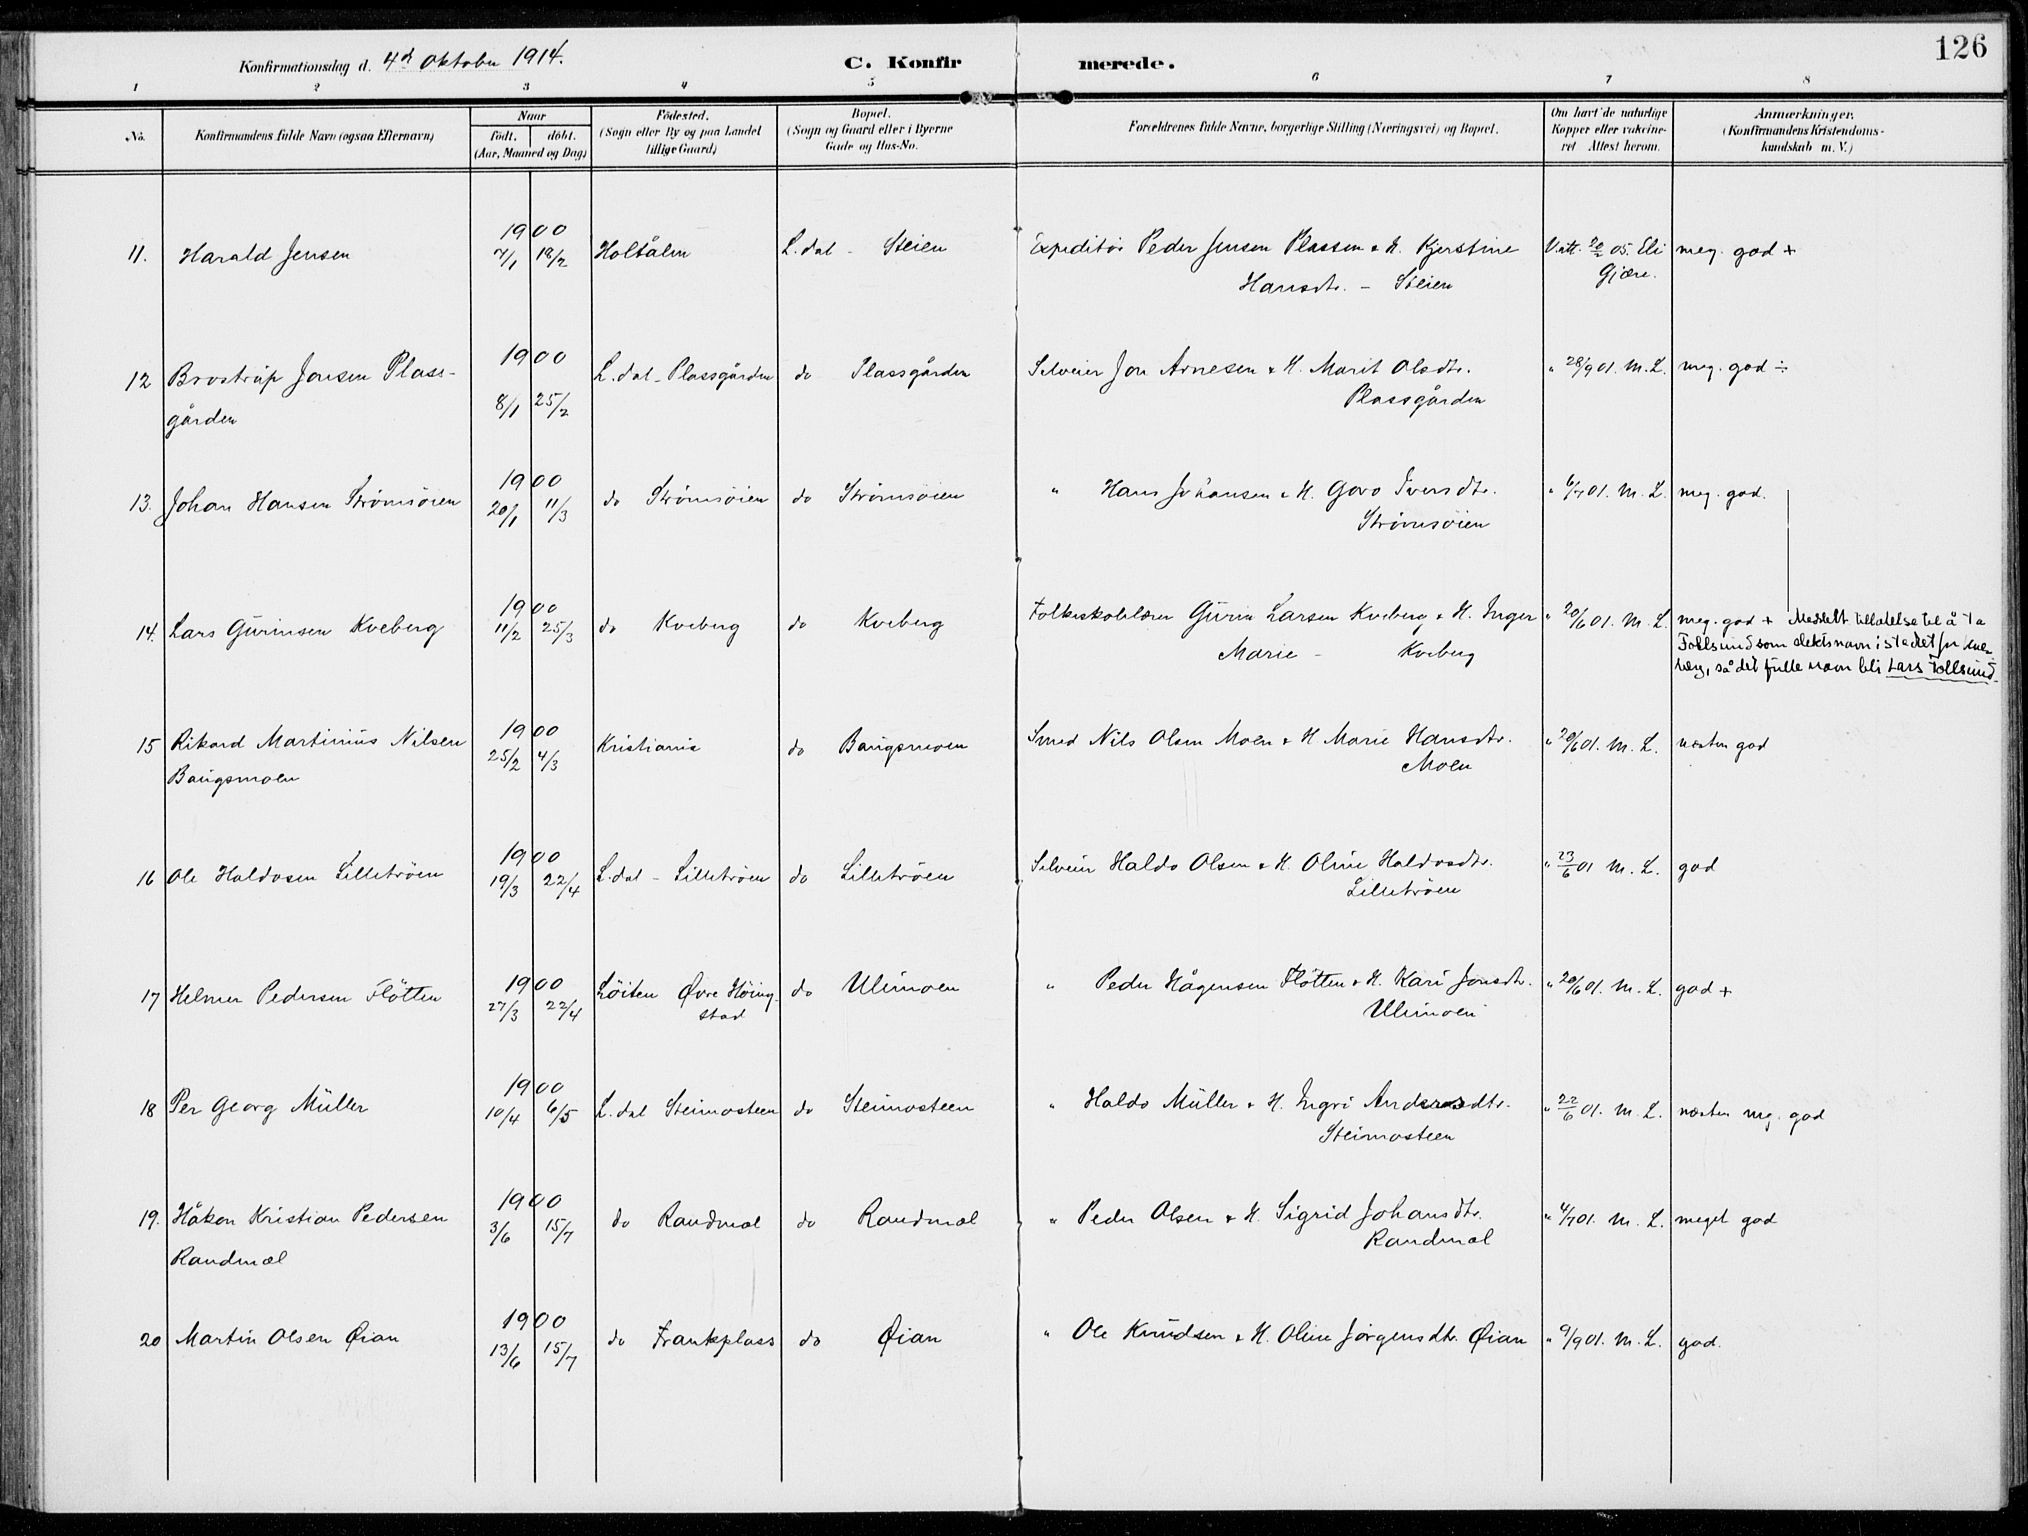 126
Konfirmationsdag d. 4de Oktober 1914.
C. Konfirmerede.
1 2 3 4 5 6 7 8
No.
Konfirmandens fulde Navn (ogsaa Efternavn)
Naar
födt. döbt.
(Aar, Maaned og Dag)
Födested.
(Sogn eller By og paa Landet
tillige Gaard)
Bopæl.
(Sogn og Gaard eller i Byerne
Gade og Hus-No.
Forældrenes fulde Navne, borgerlige Stilling (Næringsvei) og Bopæl.
Om havt de naturlige
Kopper eller vakcine-
ret Attest herom.
Anmærkninger.
(Konfirmandens Kristendoms-
kundskab m. V.)
1900
11. Harald Jensen 7/1 18/2 Holtålen L.dal - Steien Expeditör Peder Jensen Plassen & H. Kjerstine V. att. 05. Eli meg. god +
Hansdtr. - Steien Gjære.
1900
12 Brostrup Jonsen Plass- L.dal - Plassgården do Plassgården Selveier Jon Arnesen & H. Marit Olsdtr. " 28/9 01. M. L. meg. god ÷
gården 8/1 25/2 Plassgården
1900
13. Johan Hansen Strömsöien 20/1 11/3 do Strömsöien do Strömsöien " Hans Johansen & H. Goro Iversdtr. " 6/7 01. M. L. meg. god.
Strömsöien
1900
14. Lars Gurinsen Kveberg 11/2 25/3 do Kveberg do Kveberg Folkeskolelærer Gurin Larsen Kveberg & H. Inger " 20/6 01. M. L. meg. god + Meddelt tillatelse til å ta
Marie - Kveberg
Tollsund som slektsnavn i stedet for Kve-
berg, så det fulle navn bli Lars Tollsund.
1900
15 Rikard Martinius Nilsen 25/2 4/3 Kristiania do Baugsmoen Smed Nils Olsen Moen & H Marie Hansdtr. " 20/6 01. M. L. næsten god
Baugsmoen Moen
1900
16 Ole Haldosen Lilletröen 19/3 22/4 L.dal - Lilletröen do Lilletröen Selveier Haldo Olsen & H. Oline Haldosdtr. " 23/6 01 M. L. god
Lilletröen
1900
17 Helmer Pedersen Flötten 27/3 22/4 Löiten Øvre Höing- do Ulimoen " Peder Hågensen Flötten & H. Kari Jonsdtr. " 20/6 01. M. L. god +
stad Ulimoen
1900
18 Per Georg Müller 10/4 6/5 L. dal Steimosteen do Steimosteen " Haldo Müller & H. Ingri Andersdtr. " 22/6 01. M. L. næsten meg. god
Steimosteen
1900
19. Håkon Kristian Pedersen 3/6 15/7 do Randmæl do Randmæl " Peder Olsen & H. Sigrid Johansdtr. " 4/7 01. M. L. meget god
Randmæl Randmæl
1900
20 Martin Olsen Øian 13/6 15/7 do Frankplass do Øian " Ole Knudsen & H. Oline Jörgensdtr. Øian " 9/9 01. M. L. god.